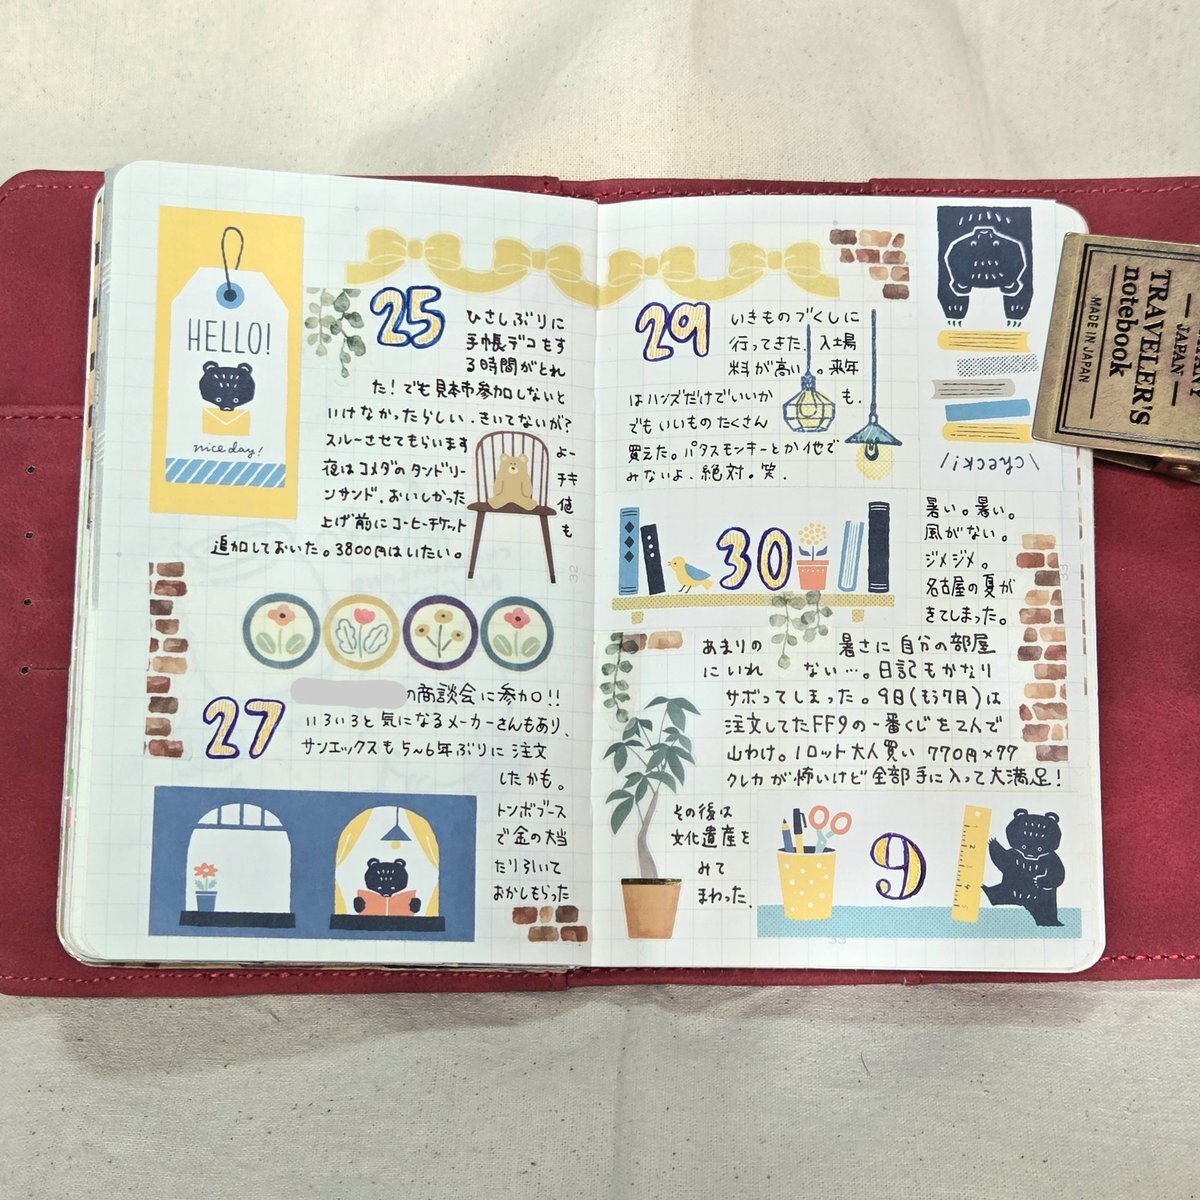 HELLO!
nice day!
25
ひさしぶりに
手帳デコをす
る時間がとれ
た！でも見本市参加しないと
いけなかったらしい。きいてないが？
スルーさせてもらいます
よー
夜はコメダのタンドリー
チキ
ンサンド。おいしかった
値
上げ前にコーヒーチケット
も
追加しておいた。3800円はいたい。
32
27
の商談会に参加!!
いろいろと気になるメーカーさんもあり、
サンエックスも5~6年ぶりに注文
したかも。
トンボブース
で金の大当
たり引いて
おかしもらった
29
いきものづくしに
行ってきた。入場
料が高い。来年
はハンズだけでいいか
も。
でもいいものたくさん
買えた。パタスモンキーとか他で
みないよ、絶対。笑.
\check!/
30
暑い。暑い。
風がない。
ジメジメ。
名古屋の夏が
きてしまった。
33
あまりの 暑さに自分の部屋
にいれ ない…。日記もかなり
サボってしまった。9日(もう7月)は
注文してたFF9の一番くじを2人で
山わけ。1ロット大人買い 770円×77
クレカが怖いけど全部手に入って大満足!
その後は
文化遺産を
みて
まわった.
9
33
TRAVELER'S
notebook
MADE IN JAPAN
JAPAN